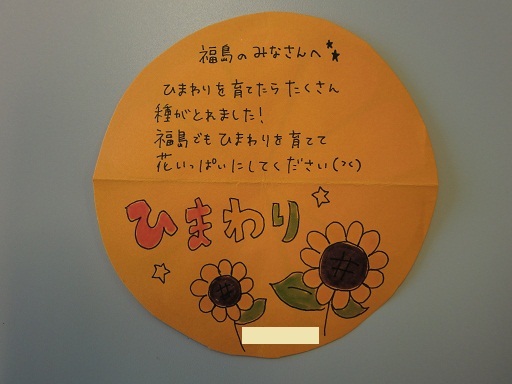 福島のみなさんへ
ひまわりを育てたら たくさん
種がとれました!
福島でも ひまわりを育てて
花いっぱいにしてください(つく)
ひまわり